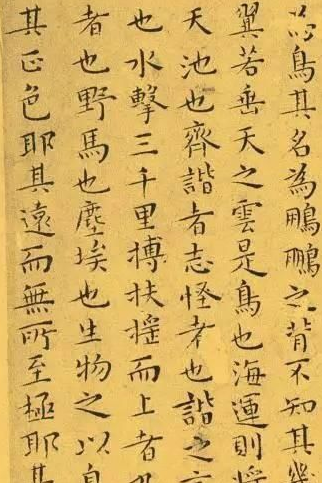 為鳥其名為鵬鵬之背不知其幾
翼若垂天之雲是鳥也海運則將
天池也齊諧者志怪者也諧之言
也水擊三千里搏扶搖而上者九
者也野馬也塵埃也生物之以息
其正色耶其遠而無所至極耶其